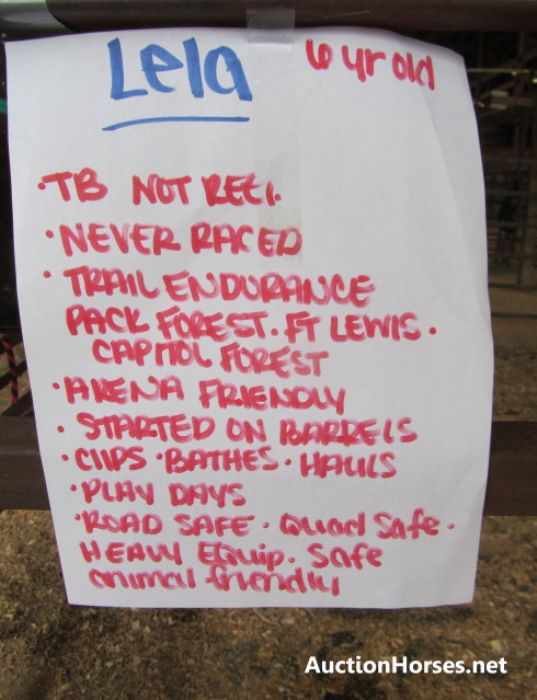 Lela
6 yr old
• TB NOT REG.
• NEVER RACED
• TRAIL ENDURANCE
PACK FOREST. FT LEWIS.
CAPITOL FOREST
• ARENA FRIENDLY
• STARTED ON BARRELS
• CLIPS • BATHES • HAULS
• PLAY DAYS
• ROAD SAFE • Quad Safe •
HEAVY Equip. Safe
animal friendly
AuctionHorses.net